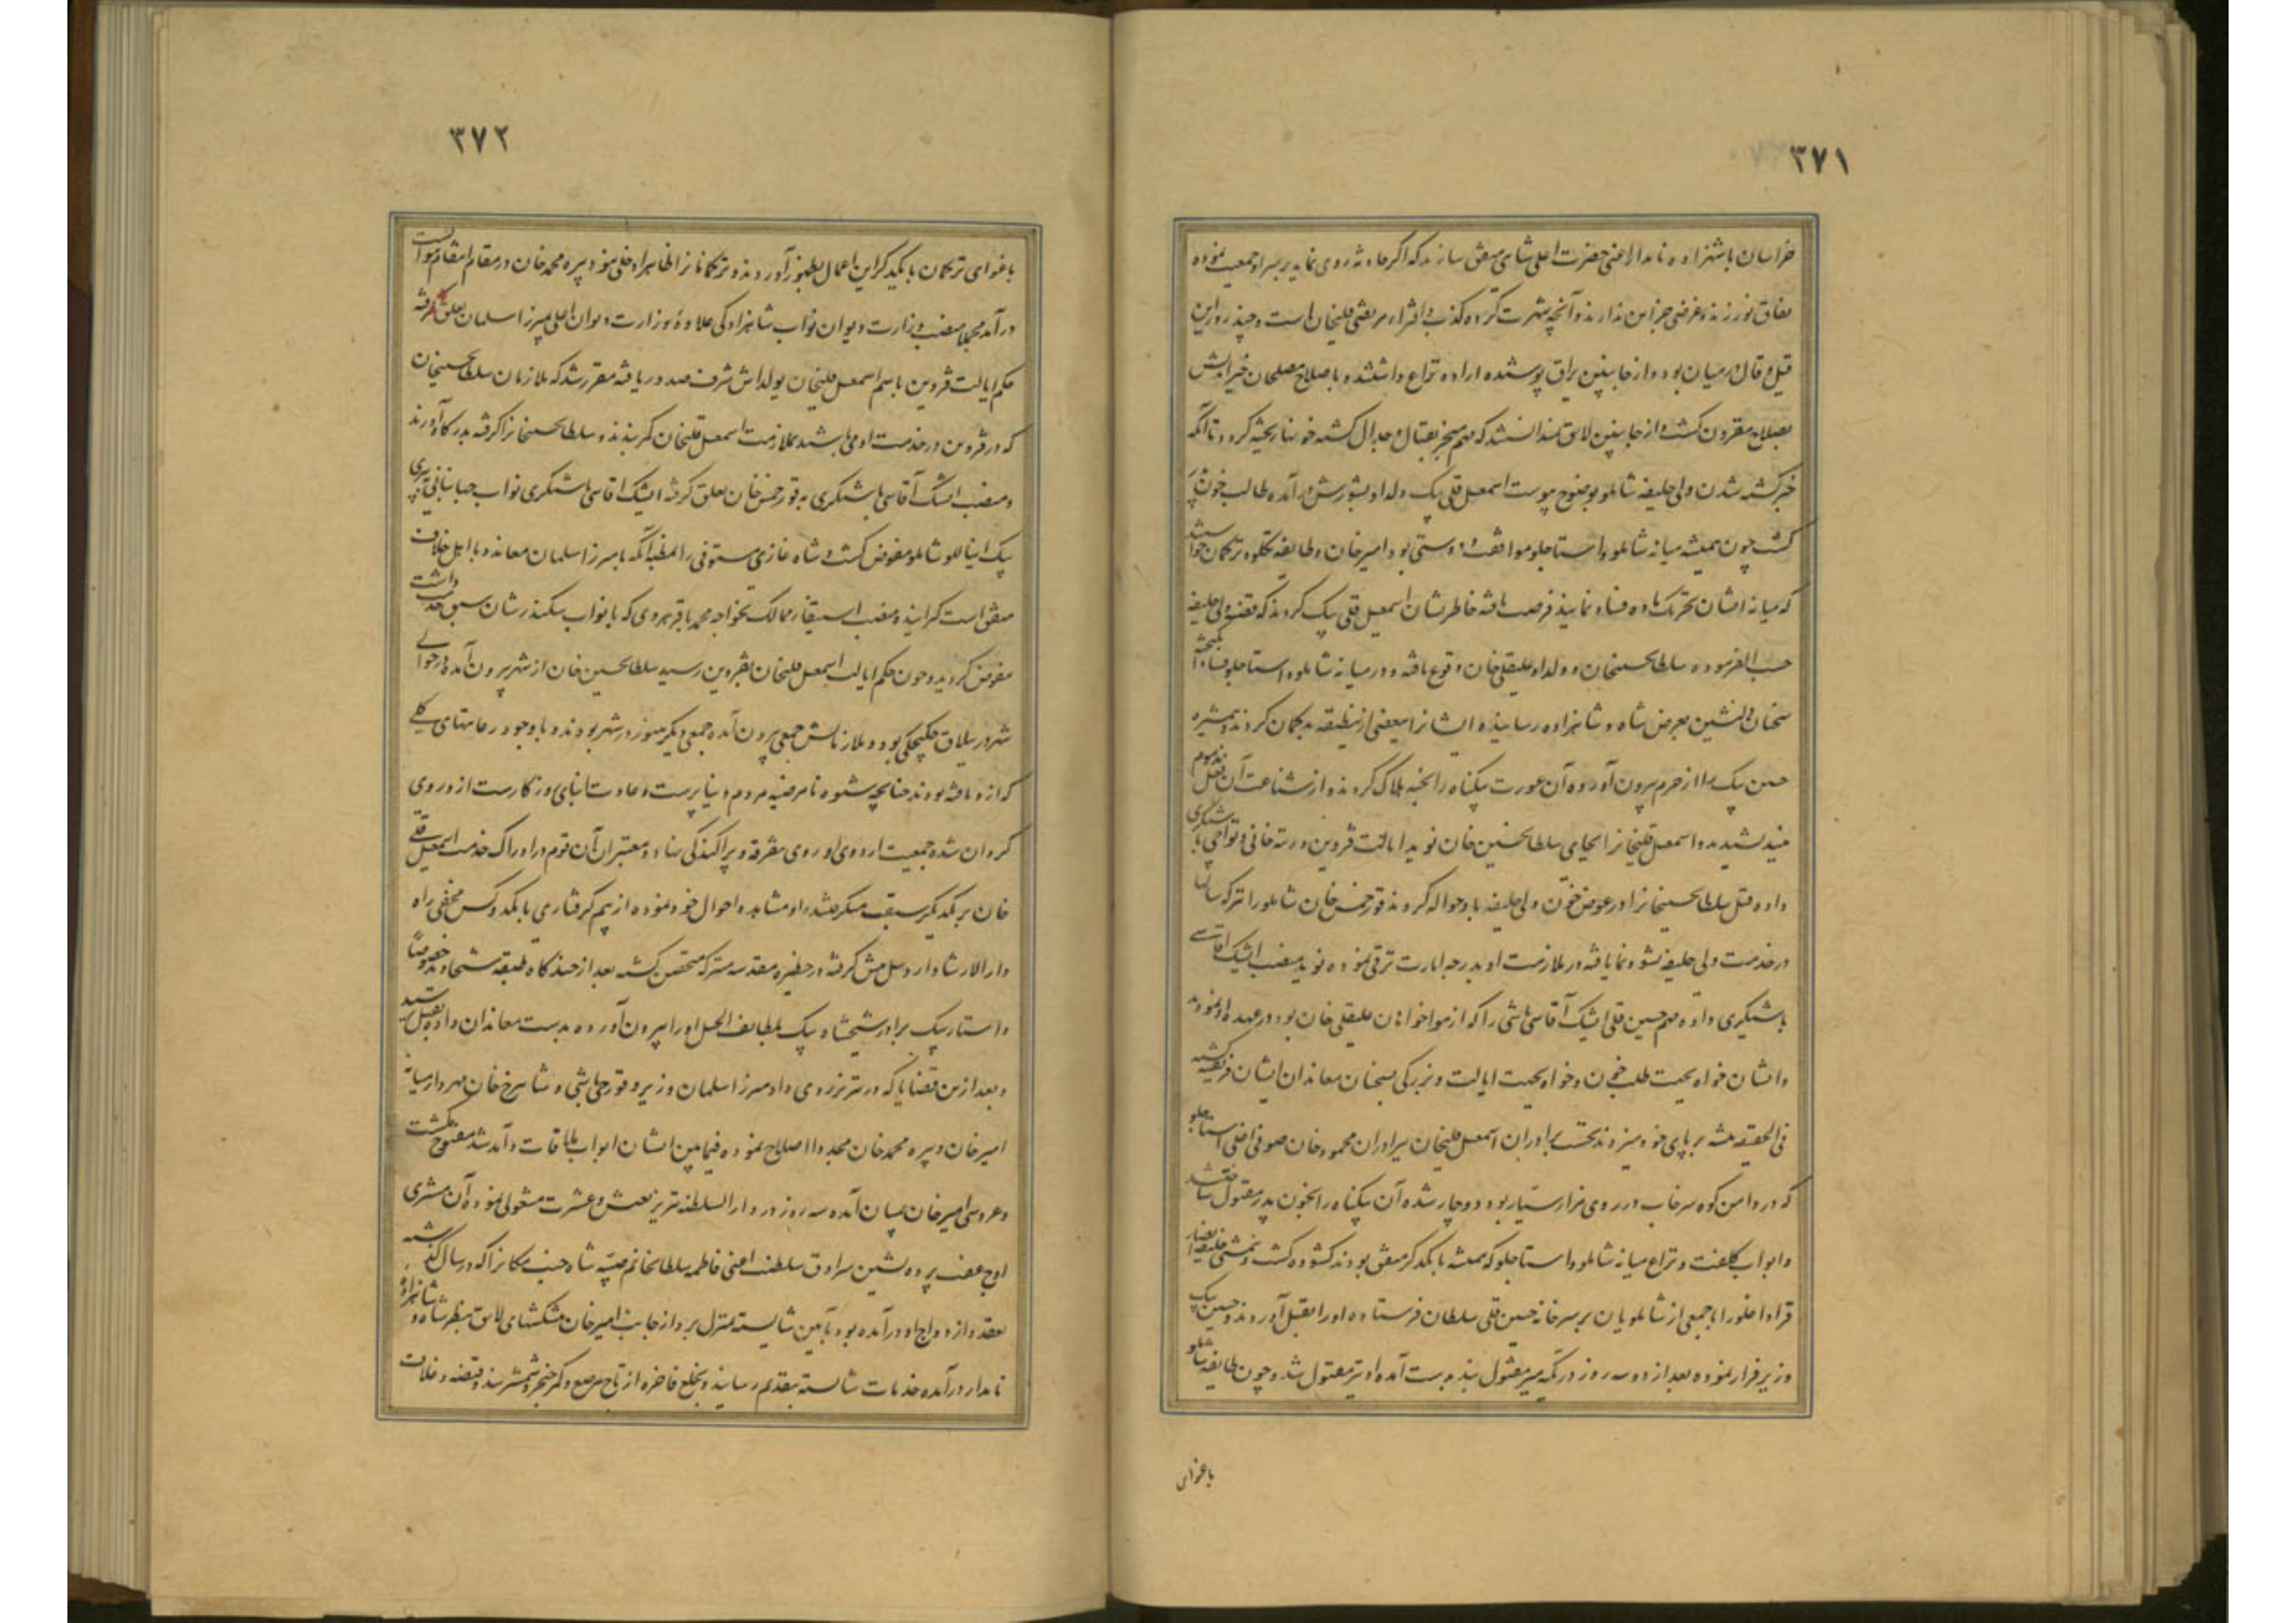 ۳۷۱
خراسان با شهزاده نامدار اعنی حضرت اعلی شاهی متفق سازند که اگر حادثه روی نماید بر سر او جمعیت نموده
نفاق نورزند و غرضی جز این ندارند و آنچه شهرت کرده کذب و افتراء مرتضی قلیخان است و چند روز این
قیل و قال در میان بود و از جانبین یراق پوشیده اراده نزاع داشتند و باصلاح مصلحان خیراندیش
بصلاح مقرون گشت و از جانبین لایق ندانستند که مهم منجر بقتال و جدال گشته خونها ریخته گردد تا آنکه
خبر کشته شدن ولی خلیفه شاملو بوضوح پیوست اسمعیل قلی بیک ولد او بشورش درآمده طالب خون پدر
گشت چون همیشه میانه شاملو و استاجلو موافقت و دوستی بود امیرخان و طایفه تکلو و ترکمان
که میانه ایشان تحریک ماده فساد نمایند فرصت یافته خاطرنشان اسمعیل قلی بیک کردند که قضیه ولی خلیفه
حسب الفرموده سلطانحسینخان و ولد او علیقلی خان وقوع یافته و در میانه شاملو و استاجلو فساد
سخنان دلنشین بعرض شاه و شاهزاده رسانیده ایشانرا بیعضی ازینطبقه بدگمان کردند و همشیره
حسن بیک را از حرم بیرون آورده آن عورت بیگناه را بخبه هلاک کردند و از شناعت آن فعل مذموم
نیندیشیدند و اسمعیل قلیخانرا بجای سلطانحسین خان نوید ایالت قزوین و رتبه خانی و تواچی باشیگری
داده قتل سلطانحسینخانرا در عوض خون ولی خلیفه باو حواله کردند قورخمس خان شاملو را نیز که سالها
در خدمت ولی خلیفه نشو و نما یافته در ملازمت او بدرجه امارت ترقی نموده نوید منصب ایشیک اقاسی
باشیگری داده مهم حسین قلی ایشیک آقاسی باشی را که از هواخواهان علیقلی خان بود در عهده او نمودند
و ایشان خواه بجهت طلب خون و خواه بجهت ایالت و بزرگی بسخنان معاندان ایشان فریفته گشته
فی الحقیقه تیشه بر پای خود میزدند نخست برادران اسمعیل قلیخان بر برادران محمود خان صوفی اغلی استاجلو
که در دامن کوه سرخاب در روی مزار ستار بود دوچار شده آن بیگناه را بخون پدر مقتول ساختند
و ابواب کلفت و نزاع میانه شاملو و استاجلو که همیشه با یکدیگر متفق بودند گشوده گشت
قراداغلو را با جمعی از شاملویان بر سر خانه حسین قلی سلطان فرستاده او را بقتل آوردند و حسین بیک
وزیر فرار نموده بعد از دو سه روز در تکیه میر مفتول بند بدست آمده او نیز مقتول شد و چون طایفه شاملو
باغوای
۳۷۲
باغوای ترکمان با یکدیگر این اعمال بظهور آوردند و ترکمانان را بظاهر او دخلی نبود پیره محمد خان در مقام انتقام
درآمد مجملا منصب وزارت دیوان نواب شاهزادگی علاوه وزارت دیوان اعلی بمیرزا سلمان تعلق گرفته
حکم ایالت قزوین باسم اسمعیل قلیخان یولداش شرف صدور یافته مقرر شد که ملازمان سلطانحسینخان
که در قزوین در خدمت او می باشند بملازمت اسمعیل قلیخان کمر بندند و سلطانحسینخانرا گرفته بدرگاه آورند
و منصب ایشیک آقاسی باشیگری به قورخمس خان تعلق گرفته ایشیک اقاسی باشیگری نواب جهانبانی
بیک اینانلو شاملو مفوض گشت و شاه غازی مستوفی را بمظنه آنکه با میرزا سلمان معاند و با اهل خلاف
متفق است گرانیده منصب استیفاء ممالک بخواجه محمد باقر هروی که با نواب سکندرشان سبق خدمت داشت
مفوض گردید و چون حکم ایالت اسمعیل قلیخان بقزوین رسید سلطانحسین خان از شهر بیرون آمده در حوالی
شهر در ییلاق بود و ملازمانش جمعی بیرون آمده جمعی دیگر هنوز در شهر بودند و با وجود رعایتهای کلی
که از و یافته بودند چنانچه شیوه نامرضیه مردم دنیاپرست و عادت ابنای روزگارست از و روی
گردان شده جمعیت اردوی او روی بتفرقه و پراکندگی نهاد و معتبران آن قوم در ادراک خدمت اسمعیل قلی
خان بر یکدیگر سبقت میگرفتند او مشاهده احوال خود نموده از بیم گرفتاری با یکدو کس مخفی راه
دارالارشاد اردبیل پیش گرفته در حظیره مقدسه متبرکه متحصن گشته بعد از چندگاه طبقه شیخاوند خصوصا
و استار بیک برادر شیخشاه بیک بلطایف الحیل او را بیرون آورده بدست معاندان داده بقتل رسید
و بعد ازین قضایا که در تبریز روی داد میرزا سلمان وزیر و قورچی باشی و شاهرخ خان مهردار میانه
امیرخان و پیره محمد خان مجددا اصلاح نموده فیمابین ایشان ابواب ملاقات و آمد شد مفتوح گشت
و عروسی امیرخان بمیان آمده سه روز در دارالسلطنه تبریز بعیش و عشرت مشغولی نموده آن مشتری
اوج عفت پرده نشین سرادق سلطنت اعنی فاطمه سلطان خانم صبیه شاه جنت مکانرا که در سال گذشته
بعقد و ازدواج او درآمده بود بآیین شایسته بمنزل برد از جانب امیرخان پیشکشهای لایق بنظر شاه و شاهزاده
نامدار درآمده خدمات شایسته بتقدیم رسانید و بخلع فاخره از تاج مرصع و کمر خنجر و شمشیر